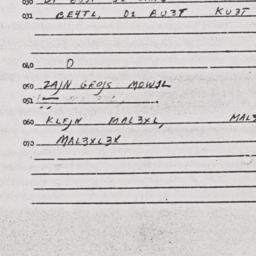 031 BE4TL, DI AU3T KU3T
040 O
050 ZAJN GEOJS MOWJL
052
060 KLEJN MAL3XL, MAL3
070 MAL3XL3X